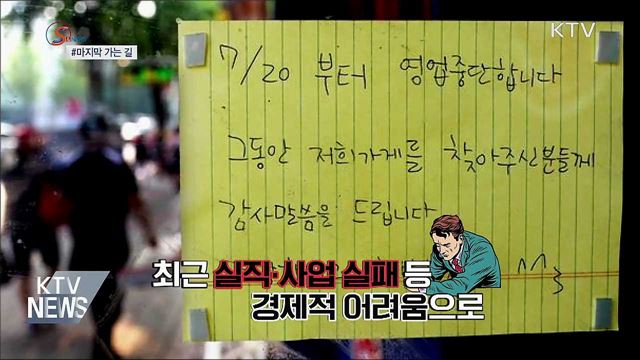 #마지막 가는 길
KTV
7/20 부터 영업중단합니다
그동안 저희가게를 찾아주신분들께
감사말씀을 드립니다
최근 실직·사업 실패 등
경제적 어려움으로
KTV
NEWS